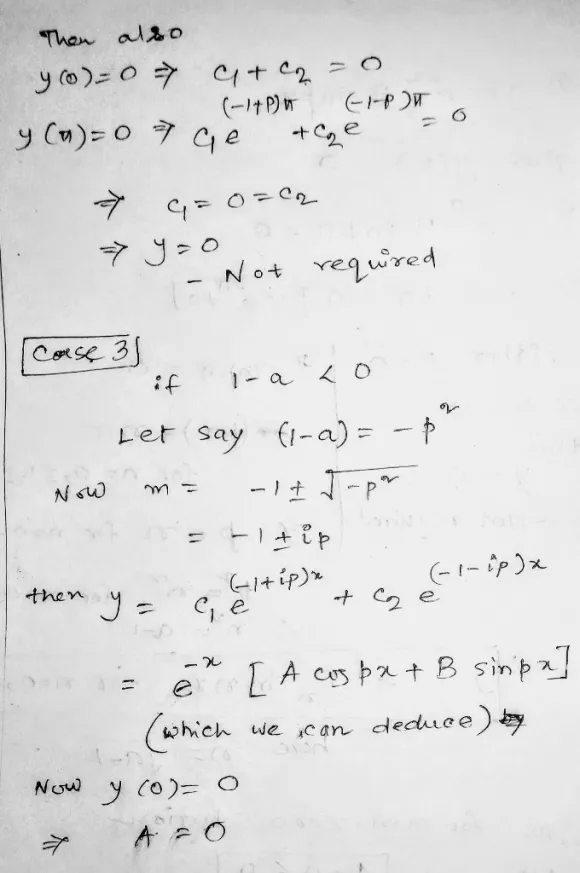 Then also
y(0)=0 ⇒ c₁ + c₂ = 0
y(π)=0 ⇒ c₁e^{(-1+p)π} + c₂e^{(-1-p)π} = 0
⇒ c₁ = 0 = c₂
⇒ y = 0
- Not required
Case 3
if 1-a < 0
Let say (1-a) = -p²
Now m = -1 ± √-p²
= -1 ± ip
then y = c₁e^{(-1+ip)x} + c₂e^{(-1-ip)x}
= e^{-x} [A cos px + B sin px]
(which we can deduce)
Now y(0) = 0
⇒ A = 0